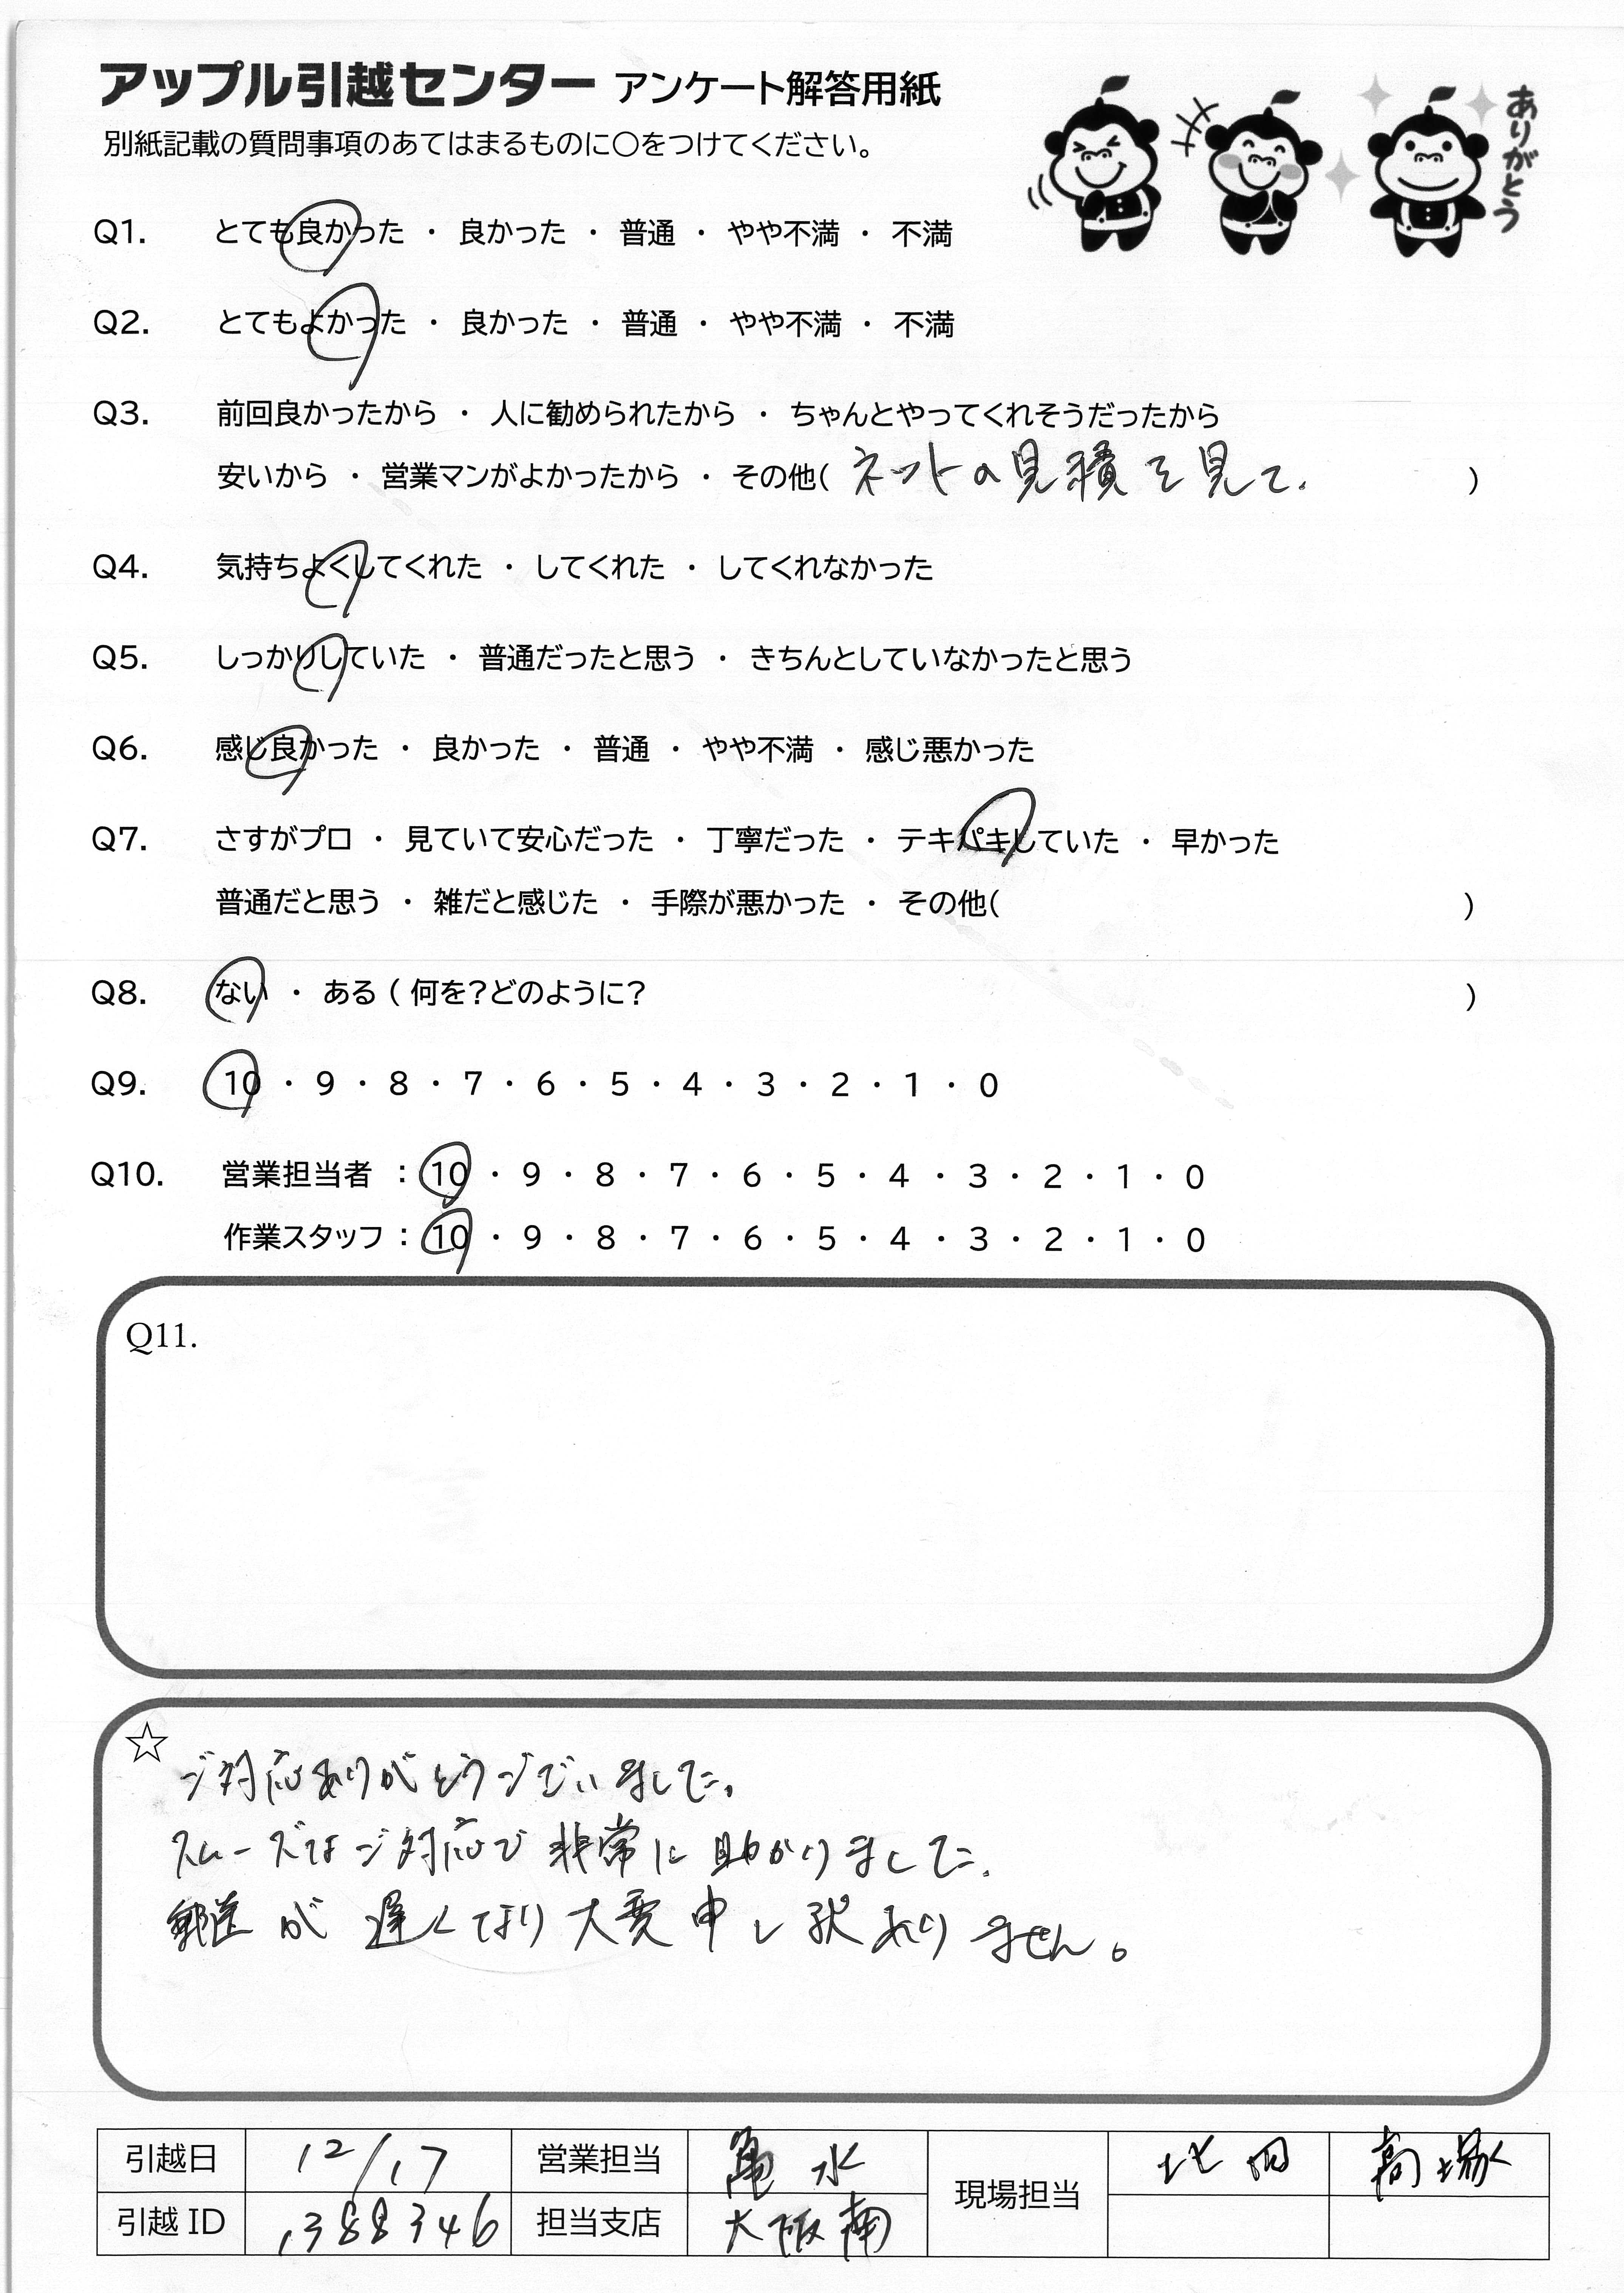 アップル引越センター アンケート解答用紙
別紙記載の質問事項のあてはまるものに○をつけてください。
ありがとう
Q1. とても良かった ・ 良かった ・ 普通 ・ やや不満 ・ 不満
Q2. とてもよかった ・ 良かった ・ 普通 ・ やや不満 ・ 不満
Q3. 前回良かったから ・ 人に勧められたから ・ ちゃんとやってくれそうだったから
安いから ・ 営業マンがよかったから ・ その他( ネットの見積を見て. )
Q4. 気持ちよくしてくれた ・ してくれた ・ してくれなかった
Q5. しっかりしていた ・ 普通だったと思う ・ きちんとしていなかったと思う
Q6. 感じ良かった ・ 良かった ・ 普通 ・ やや不満 ・ 感じ悪かった
Q7. さすがプロ ・ 見ていて安心だった ・ 丁寧だった ・ テキパキしていた ・ 早かった
普通だと思う ・ 雑だと感じた ・ 手際が悪かった ・ その他( )
Q8. ない ・ ある ( 何を?どのように? )
Q9. 10 ・ 9 ・ 8 ・ 7 ・ 6 ・ 5 ・ 4 ・ 3 ・ 2 ・ 1 ・ 0
Q10. 営業担当者 : 10 ・ 9 ・ 8 ・ 7 ・ 6 ・ 5 ・ 4 ・ 3 ・ 2 ・ 1 ・ 0
作業スタッフ : 10 ・ 9 ・ 8 ・ 7 ・ 6 ・ 5 ・ 4 ・ 3 ・ 2 ・ 1 ・ 0
Q11.
☆
ご対応ありがとうございました。
スムーズなご対応で非常に助かりました。
郵送が遅くなり大変申し訳ありません。
引越日 12/17 営業担当 亀水 現場担当 高塚
引越ID 1388346 担当支店 大阪南